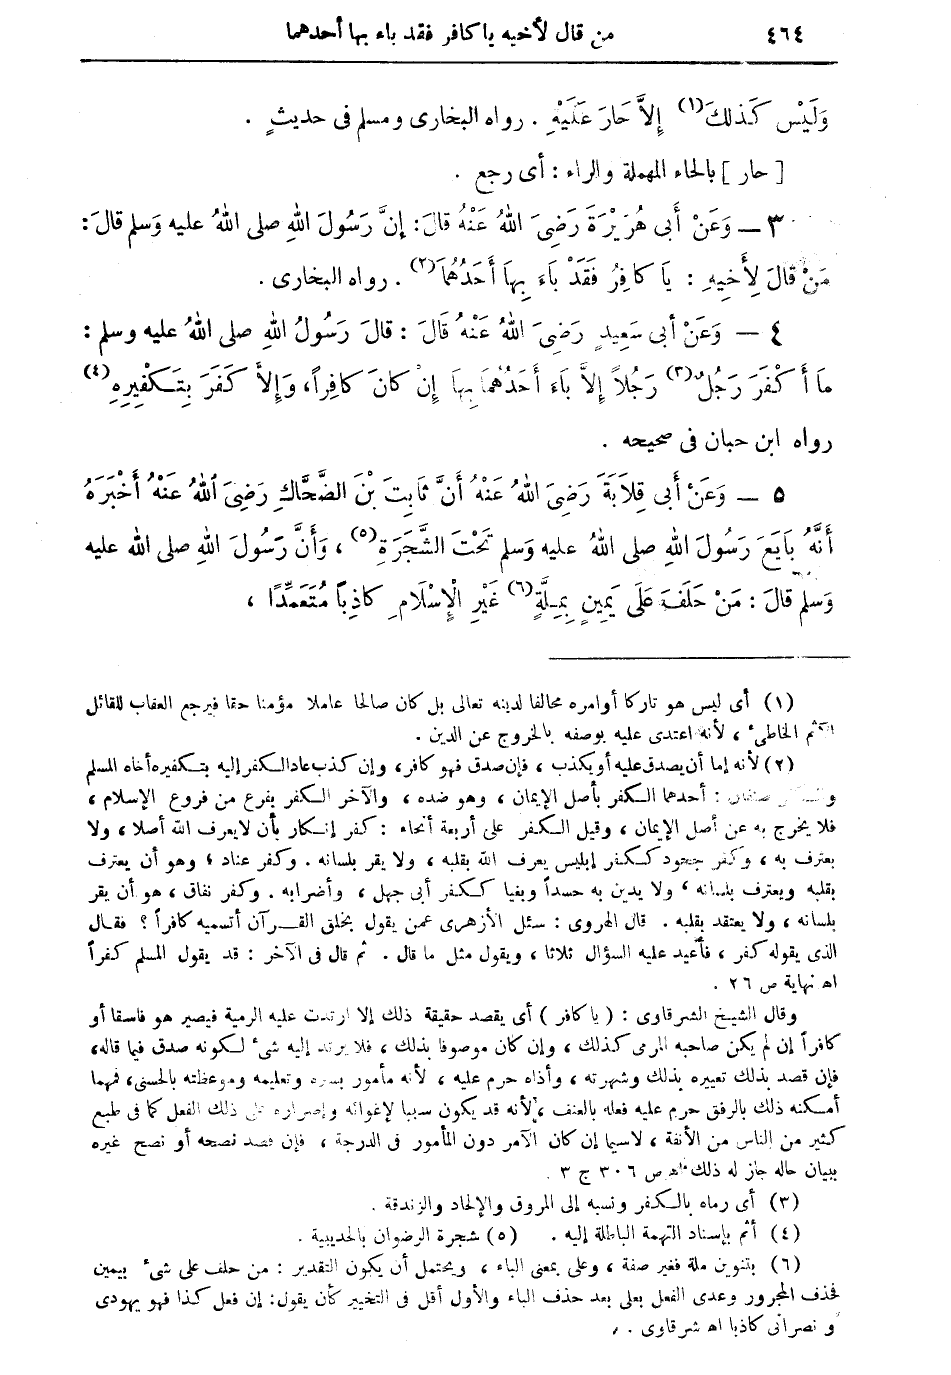 ٤٦٤ من قال لأخيه ياكافر فقد باء بها أحدهما
وَلَيْسَ كَذلِكَ(١) إِلاَّ حَارَ عَلَيْهِ . رواه البخارى ومسلم فى حديثٍ .
[ حار ] بالحاء المهملة والراء : أى رجع .
٣ — وَعَنْ أَبى هُرَيْرَةَ رَضِىَ اللهُ عَنْهُ قالَ: إِنَّ رَسُولَ اللهِ صلى اللهُ عليه وَسلم قالَ:
مَنْ قالَ لِأَخِيهِ : يَا كافِرُ فَقَدْ باءَ بِهَا أَحَدُهُمَا(٢) . رواه البخارى .
٤ — وَعَنْ أَبى سَعِيدٍ رَضِىَ اللهُ عَنْهُ قَالَ : قالَ رَسُولُ اللهِ صلى اللهُ عليه وسلم :
ما أَكْفَرَ رَجُلٌ(٣) رَجُلاً إِلاَّ بَاءَ أَحَدُهُمَا بِهَا إِنْ كانَ كافِراً، وَإِلاَّ كَفَرَ بِتَكْفِيرِهِ(٤)
رواه ابن حبان فى صحيحه .
٥ — وَعَنْ أَبى قِلاَبَةَ رَضِىَ اللهُ عَنْهُ أَنَّ ثَابِتَ بْنَ الضَّحَّاكِ رَضِىَ اللهُ عَنْهُ أَخْبَرَهُ
أَنَّهُ بَايَعَ رَسُولَ اللهِ صلى اللهُ عليه وسلم تَحْتَ الشَّجَرَةِ(٥) ، وَأَنَّ رَسُولَ اللهِ صلى الله عليه
وَسلم قالَ : مَنْ حَلَفَ عَلَى يَمِينٍ بِمِلَّةٍ(٦) غَيْرِ الْإِسْلَامِ كاذِباً مُتَعَمِّدًا ،
(١) أى ليس هو تاركا أوامره مخالفا لدينه تعالى بل كان صالحا عاملا مؤمنا حقا فيرجع العقاب للقائل
الآثم الخاطىء ، لأنه اعتدى عليه بوصفه بالخروج عن الدين .
(٢) لأنه إما أن يصدق عليه أو يكذب ، فإن صدق فهو كافر، وإن كذب عاد الكفر إليه بتكفيره أخاه المسلم
والكفر صنفان : أحدهما الكفر بأصل الإيمان ، وهو ضده ، والآخر الكفر بفرع من فروع الإسلام ،
فلا يخرج به عن أصل الإيمان ، وقيل الكفر على أربعة أنحاء : كفر إنكار بأن لايعرف الله أصلا ، ولا
يعترف به ، وكفر جحود ككفر إبليس يعرف الله بقلبه ، ولا يقر بلسانه . وكفر عناد ؛ وهو أن يعترف
بقلبه ويعترف بلسانه ، ولا يدين به حسداً وبغيا ككفر أبى جهل ، وأضرابه . وكفر نفاق ، هو أن يقر
بلسانه ، ولا يعتقد بقلبه . قال الهروى : سئل الأزهرى عمن يقول بخلق القرآن أتسميه كافراً ؟ فقال
الذى يقوله كفر ، فأعيد عليه السؤال ثلاثا ، ويقول مثل ما قال . ثم قال فى الآخر : قد يقول المسلم كفراً
اهـ نهاية ص ٢٦ .
وقال الشيخ الشرقاوى : ( يا كافر ) أى يقصد حقيقة ذلك إلا ارتدت عليه الرمية فيصير هو فاسقا أو
كافراً إن لم يكن صاحبه المرمى كذلك ، وإن كان موصوفا بذلك ، فلا يرتد إليه شىء لكونه صدق فيما قاله،
فإن قصد بذلك تعييره بذلك وشهرته ، وأذاه حرم عليه ، لأنه مأمور بستره وتعليمه وموعظته بالحسنى، فمهما
أمكنه ذلك بالرفق حرم عليه فعله بالعنف ، لأنه قد يكون سببا لإغوائه وإصراره على ذلك الفعل كما فى طبع
كثير من الناس من الأنفة ، لاسيما إن كان الآمر دون المأمور فى الدرجة ، فإن قصد نصحه أو نصح غيره
ببيان حاله جاز له ذلك اهـ ص ٣٠٦ ج ٣ .
(٣) أى رماه بالكفر ونسبه إلى المروق والإلحاد والزندقة .
(٤) أثم بإسناد التهمة الباطلة إليه . (٥) شجرة الرضوان بالحديبية .
(٦) بتنوين ملة فغير صفة ، وعلى بمعنى الباء ، ويحتمل أن يكون التقدير : من حلف على شىء بيمين
فحذف المجرور وعدى الفعل بعلى بعد حذف الباء والأول أقل فى التخيير كأن يقول: إن فعل كذا فهو يهودى
أو نصرانى كاذبا اهـ شرقاوى .